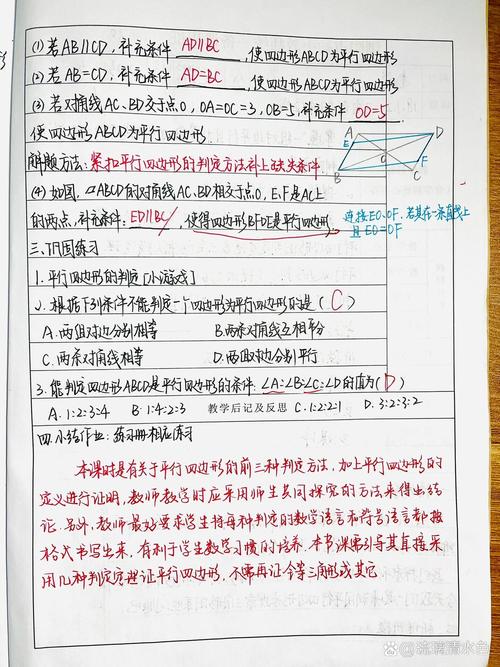 (1) 若AB∥CD,补充条件 AD∥BC ,使四边形ABCD为平行四边形
(2) 若AB=CD,补充条件 AD=BC ,使四边形ABCD为平行四边形
(3) 若对角线AC、BD交于点O,OA=OC=3,OB=5,补充条件 OD=5,
使四边形ABCD为平行四边形.
A D
E
O
F
B C
解题方法:紧扣平行四边形的判定方法补上缺失条件.
(4) 如图,▱ABCD的对角线AC、BD相交于点O,E、F是AC上
的两点,补充条件:ED∥BF,使得四边形BFDE是平行四边形
连接EO、OF,若其在一条直线上
且EO=OF
三、巩固练习
1.平行四边形的判定[小游戏]
2.根据下列条件不能判定一个四边形为平行四边形的是(C)
A.两组对边分别相等 B.两条对角线互相平分
C.两条对角线相等 D.两组对边分别平行
3.能判定四边形ABCD是平行四边形的条件:∠A:∠B:∠C:∠D的值为(D)
A.1:2:3:4 B.1:4:2:3 教学后记及反思 C.1:2:2:1 D.3:2:3:2
四.小结作业:练习册相应练习
本课时是有关于平行四边形的前三种判定方法,加上平行四边形的
定义进行证明,教师教学时应采用师生共同探究的方法来得出结
论.另外,教师最好要求学生将每种判定的数学语言和符号语言都按
格式书写出来,有利于学生数学习惯的培养.本节课需引导其直接采
用几种判定定理证平行四边形,不需再证全等三角形或其它
流璃清水色